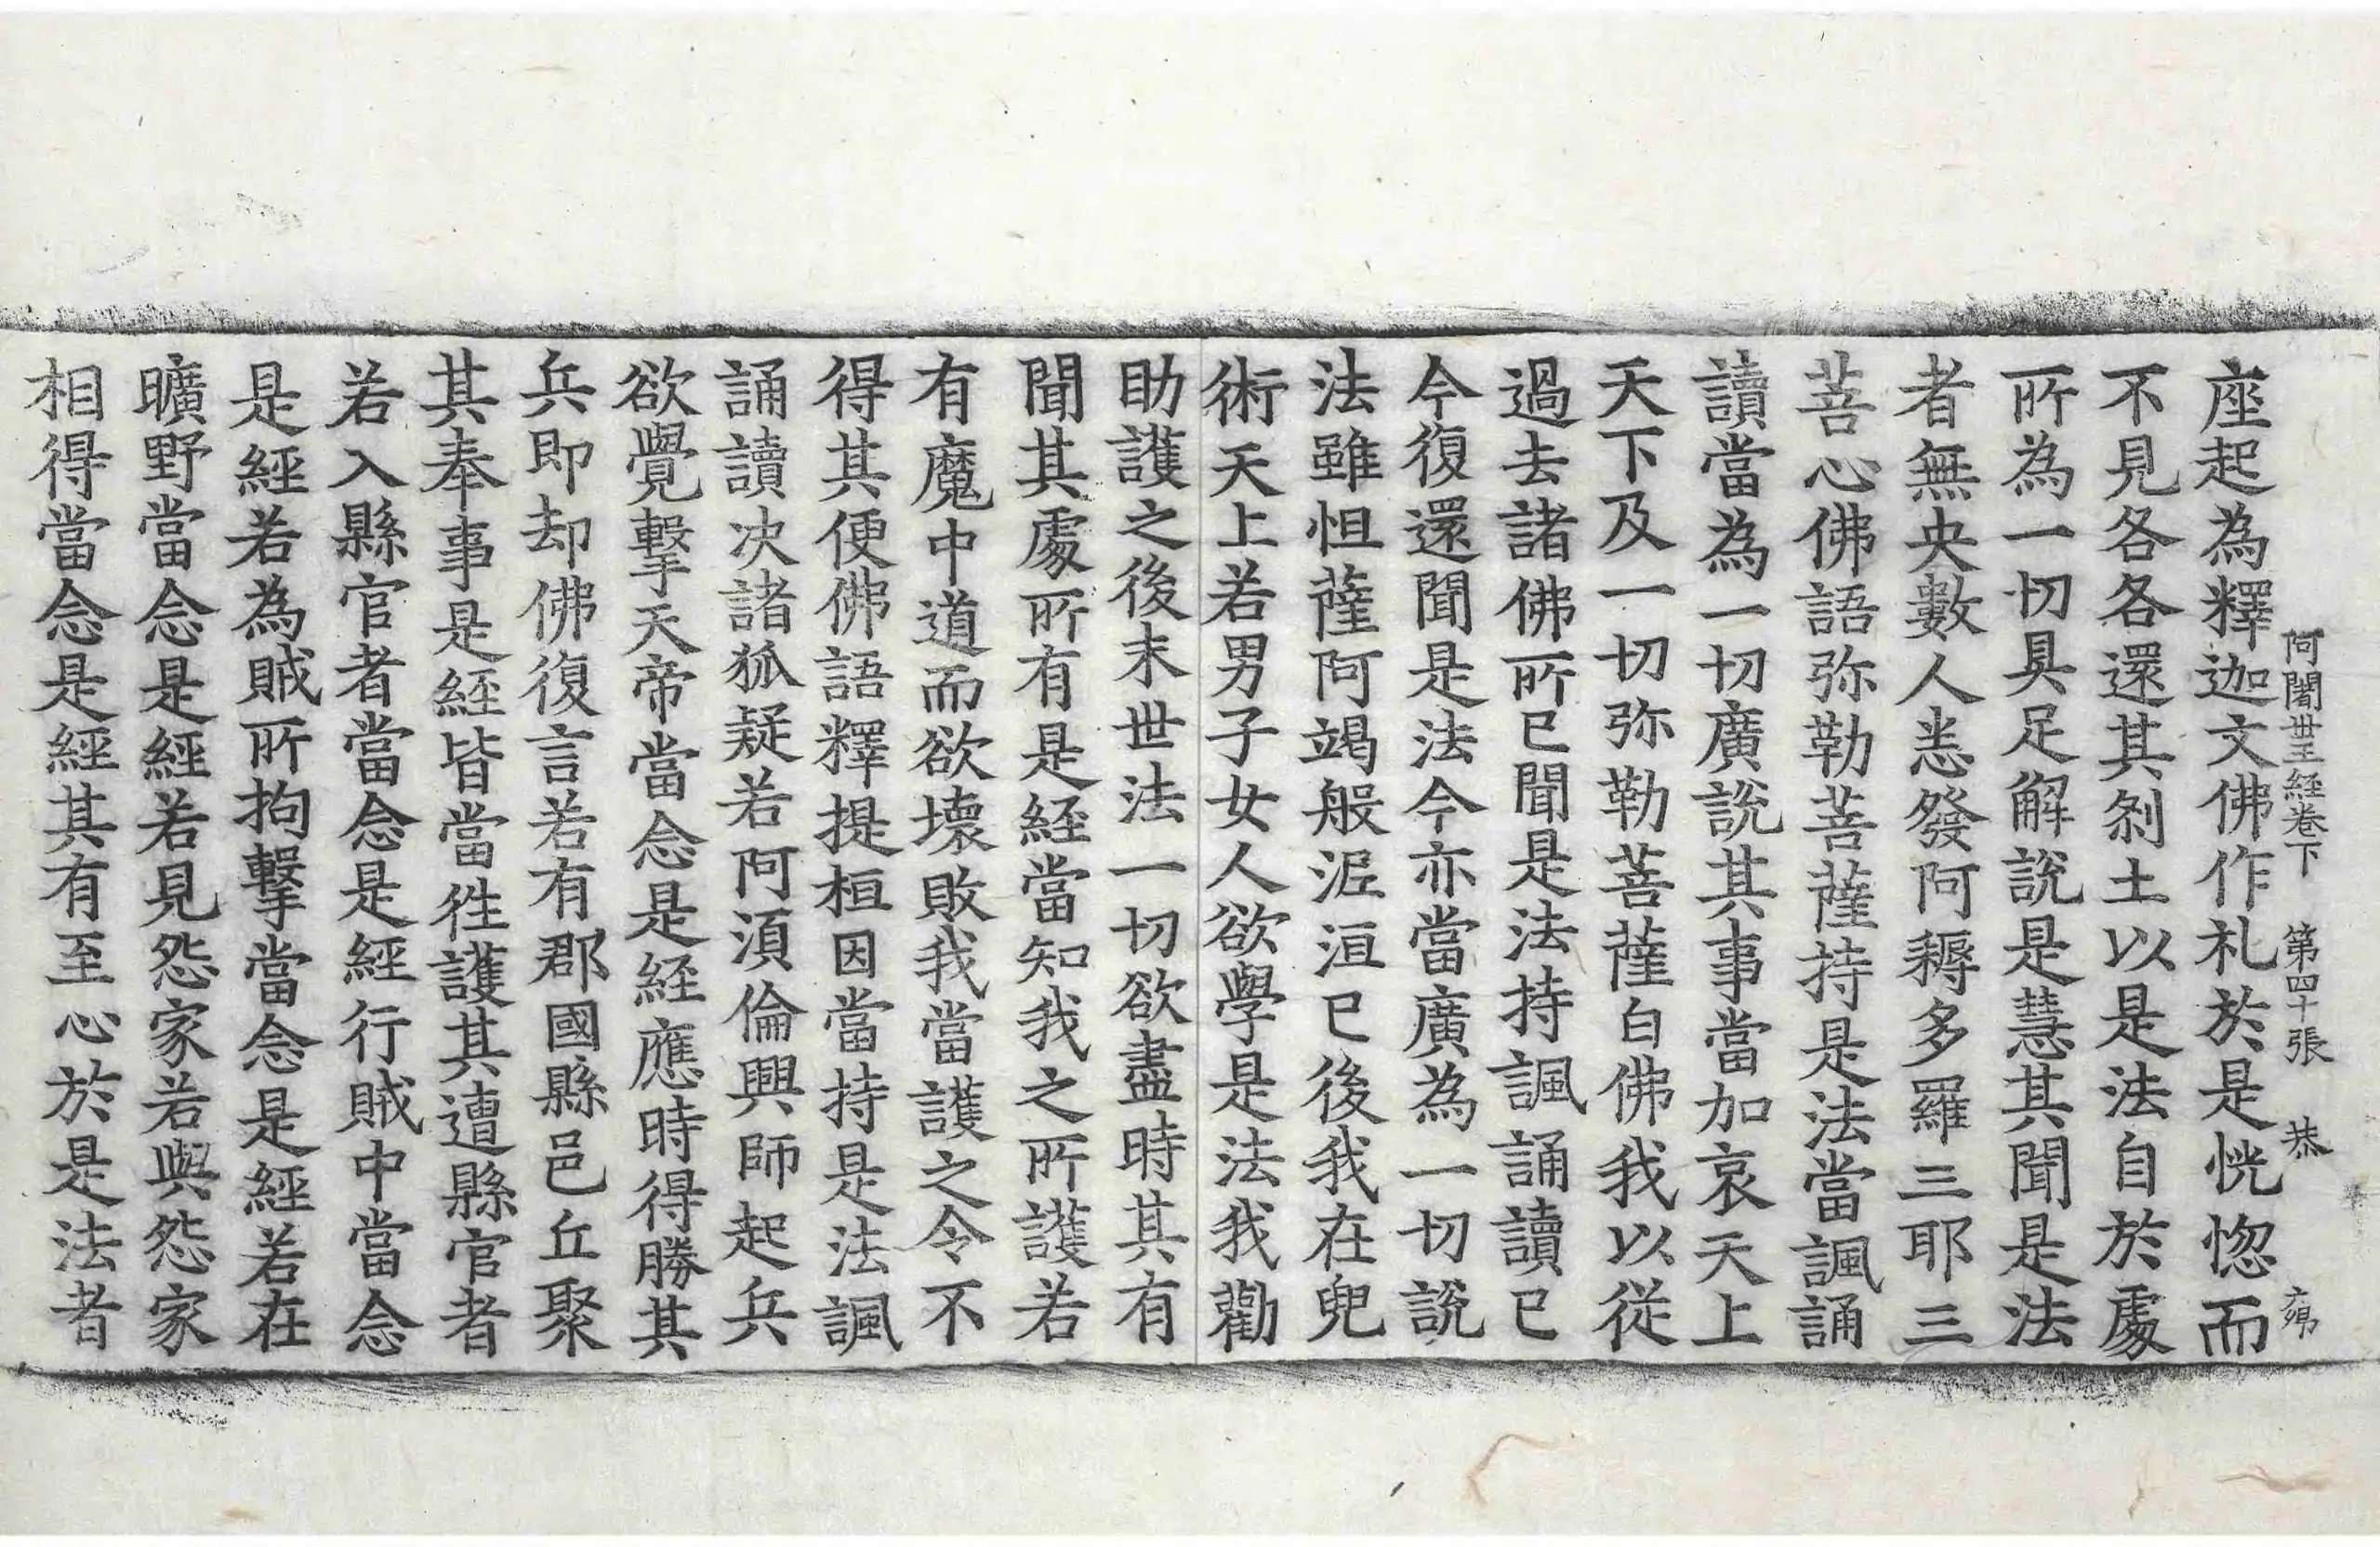 阿闍世王經卷下　第四十張　恭
座起為釋迦文佛作礼於是恍惚而
不見各各還其剎土以是法自於處
所為一切具足解說是慧其聞是法
者無央數人悉發阿耨多羅三耶三
菩心佛語弥勒菩薩持是法當諷誦
讀當為一切廣說其事當加哀天上
天下及一切弥勒菩薩白佛我以從
過去諸佛所已聞是法持諷誦讀已
今復還聞是法今亦當廣為一切說
法雖怛薩阿竭般泥洹已後我在兜
術天上若男子女人欲學是法我勸
助護之後末世法一切欲盡時其有
聞其處所有是經當知我之所護若
有魔中道而欲壞敗我當護之令不
得其便佛語釋提桓因當持是法諷
誦讀决諸狐疑若阿湏倫興師起兵
欲覺擊天帝當念是経應時得勝其
兵即却佛復言若有郡國縣邑丘聚
其奉事是經皆當徃護其遭縣官者
若入縣官者當念是經行賊中當念
是經若為賊所拘擊當念是經若在
曠野當念是經若見怨家若與怨家
相得當念是經其有至心於是法者